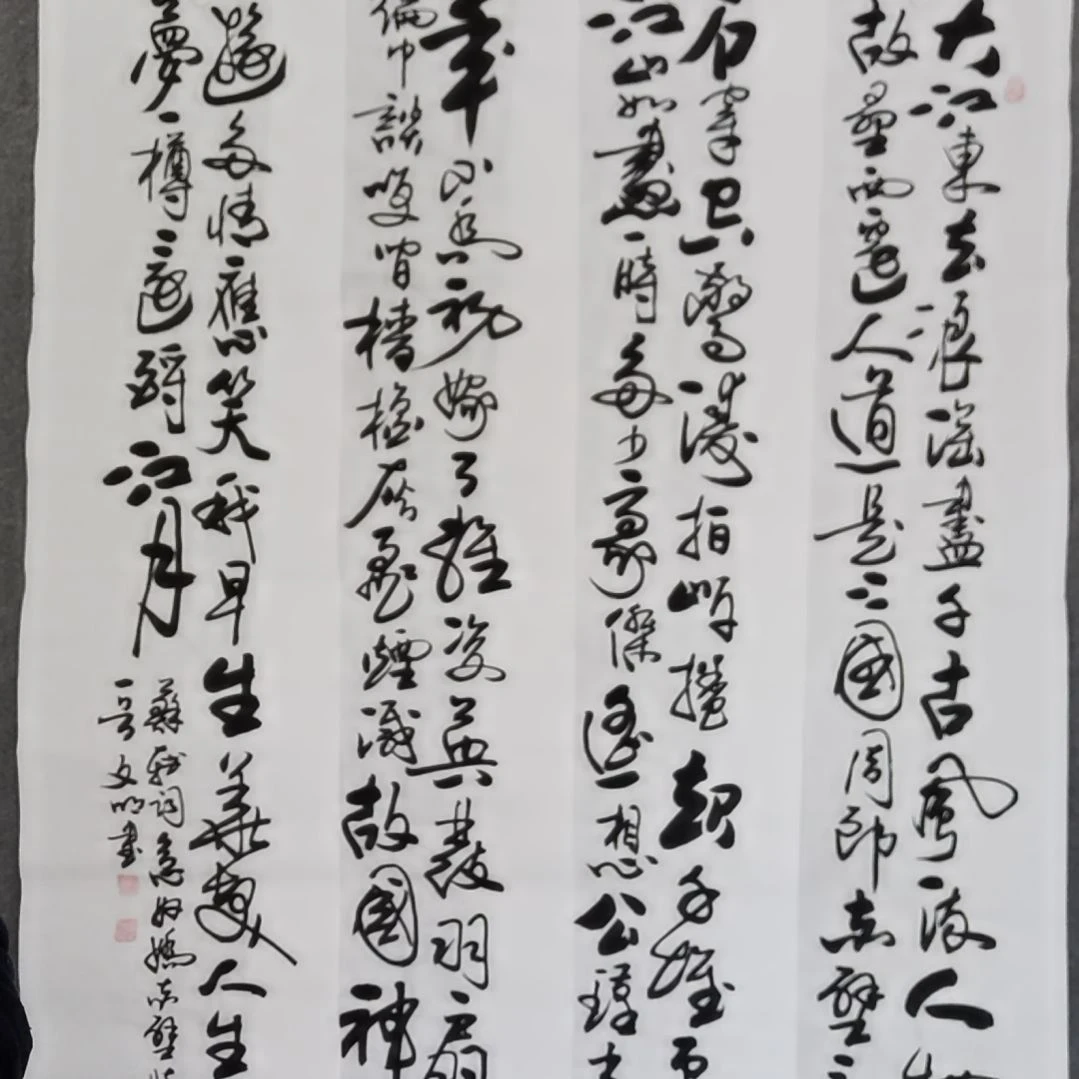 大江東去浪淘盡千古風流人物
故壘西邊人道是三國周郎赤壁
石穿空驚濤拍岸捲起千堆
江山如畫一時多少豪傑遙想公瑾當
年小喬初嫁了雄姿英發羽扇
綸巾談笑間檣櫓灰飛煙滅故國神
遊多情應笑我早生華髮人生
夢一樽還酹江月
蘇軾詞念奴嬌赤壁懷
文明書